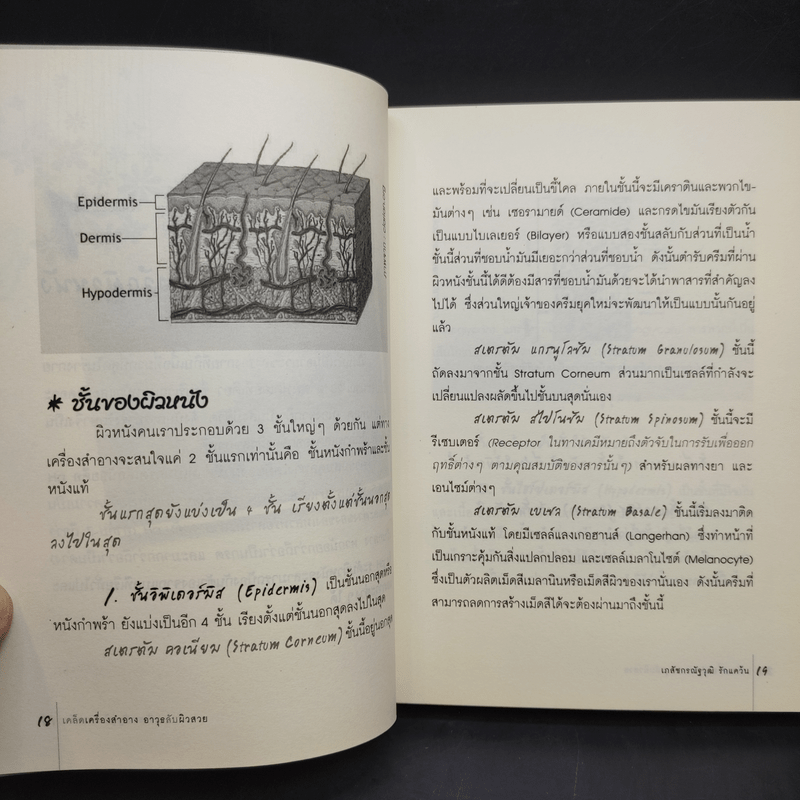 Epidermis
Dermis
Hypodermis
* ชั้นของผิวหนัง
ผิวหนังคนเราประกอบด้วย 3 ชั้นใหญ่ๆ ด้วยกัน แต่ทาง
เครื่องสำอางจะสนใจแค่ 2 ชั้นแรกเท่านั้นคือ ชั้นหนังกำพร้าและชั้น
หนังแท้
ชั้นแรกสุดยังแบ่งเป็น 4 ชั้น เรียงตั้งแต่ชั้นนอกสุด
ลงไปในสุด
1. ชั้นอิพิเดอร์มิส (Epidermis) เป็นชั้นนอกสุดหรือ
หนังกำพร้า ยังแบ่งเป็นอีก 4 ชั้น เรียงตั้งแต่ชั้นนอกสุดลงไปในสุด
สเตรตัม คอเนียม (Stratum Corneum) ชั้นนี้อยู่นอกสุด
18 เคล็ดเครื่องสำอาง อาวุธลับผิวสวย
และพร้อมที่จะเปลี่ยนเป็นขี้ไคล ภายในชั้นนี้จะมีเคราตินและพวกไข-
มันต่างๆ เช่น เซอรามายด์ (Ceramide) และกรดไขมันเรียงตัวกัน
เป็นแบบไบเลเยอร์ (Bilayer) หรือแบบสองชั้นสลับกับส่วนที่เป็นน้ำ
ชั้นนี้ส่วนที่ชอบน้ำมันมีเยอะกว่าส่วนที่ชอบน้ำ ดังนั้นตำรับครีมที่ผ่าน
ผิวหนังชั้นนี้ได้ดีต้องมีสารที่ชอบน้ำมันด้วยจะได้นำพาสารที่สำคัญลง
ไปได้ ซึ่งส่วนใหญ่เจ้าของครีมยุคใหม่จะพัฒนาให้เป็นแบบนั้นกันอยู่
แล้ว
สเตรตัม แกรนูโลซัม (Stratum Granulosum) ชั้นนี้
ถัดลงมาจากชั้น Stratum Corneum ส่วนมากเป็นเซลล์ที่กำลังจะ
เปลี่ยนแปลงผลัดขึ้นไปชั้นบนสุดนั่นเอง
สเตรตัม สไปโนซัม (Stratum Spinosum) ชั้นนี้จะมี
รีเซบเตอร์ (Receptor ในทางเคมีหมายถึงตัวจับในการรับเพื่อออก
ฤทธิ์ต่างๆ ตามคุณสมบัติของสารนั้นๆ) สำหรับผลทางยา และ
เอนไซม์ต่างๆ
สเตรตัม เบเซล (Stratum Basale) ชั้นนี้เริ่มลงมาติด
กับชั้นหนังแท้ โดยมีเซลล์แลงเกอฮานส์ (Langerhan) ซึ่งทำหน้าที่
เป็นเกราะคุ้มกันสิ่งแปลกปลอม และเซลล์เมลาโนไซต์ (Melanocyte)
ซึ่งเป็นตัวผลิตเม็ดสีเมลานินหรือเม็ดสีผิวของเรานั่นเอง ดังนั้นครีมที่
สามารถลดการสร้างเม็ดสีได้จะต้องผ่านมาถึงชั้นนี้
เภสัชกรณัฐวุฒิ รักแคว้น 19